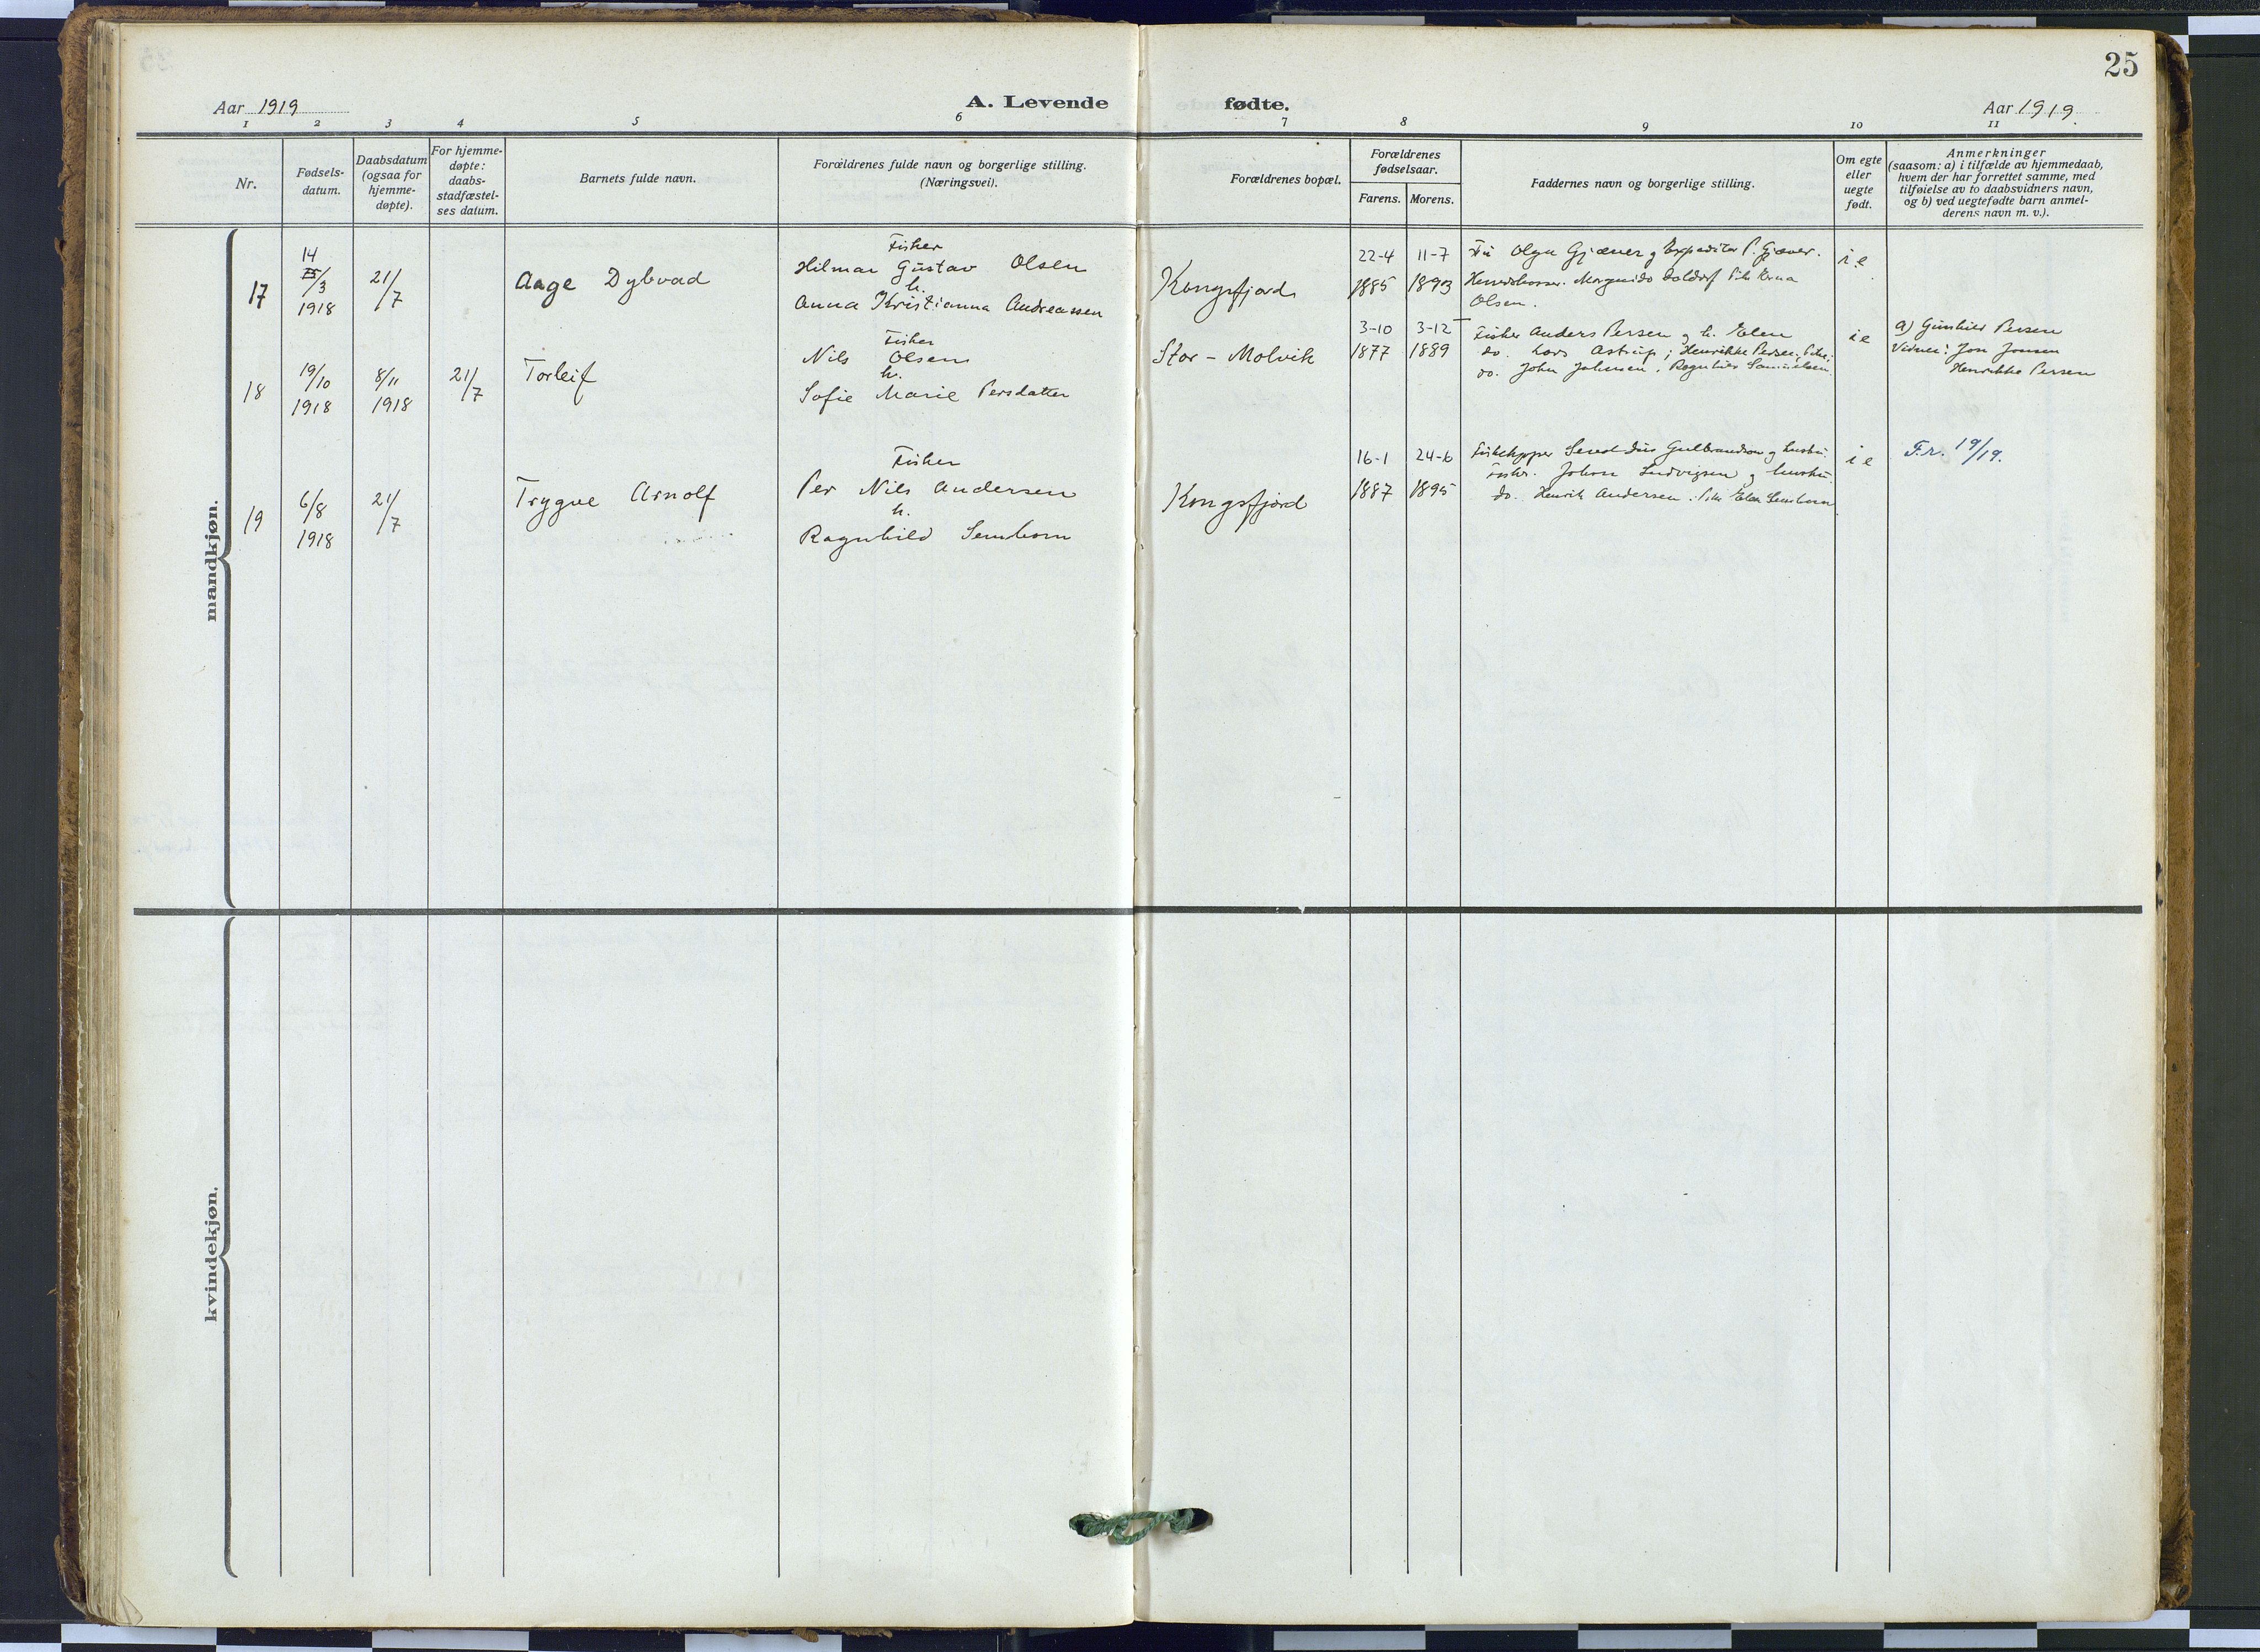 25
Aar 1919
A. Levende fødte.
Aar 1919.
1 2 3 4 5 6 7 8 9 10 11
Nr.
Fødsels-
datum.
Daabsdatum
(ogsaa for
hjemme-
døpte).
For hjemme-
døpte:
daabs-
stadfæstel-
ses datum.
Barnets fulde navn.
Forældrenes fulde navn og borgerlige stilling.
(Næringsvei).
Forældrenes bopæl.
Forældrenes
fødselsaar.
Farens. Morens.
Faddernes navn og borgerlige stilling.
Om egte
eller
uegte
født.
Anmerkninger
(saasom: a) i tilfælde av hjemmedaab,
hvem der har forrettet samme, med
tilføielse av to daabsvidners navn,
og b) ved uegtefødte barn anmel-
derens navn m. v.).
mandkjøn.
17
14
/3
1918
21/
7
Aage Dybvad
Fisker
Hilmar Gustav Olsen
h.
Anna Kristianna Andreassen
Kongsfjord
22-4 11-7
1885 1893
Fru Olga Gjæver g Expeditør P. Gjæver.
Olsen.
i.e.
18
19/10
1918
8/11
1918
21/
7
Torleif
Fisker
Nils Olsen
h.
Sofie Marie Persdatter
Stor - Molvik
3-10 3-12
1877 1889
Fisker Anders Persen g h. Elen
do. Lars Astrup; Henrikke Persen,
do. John Johnsen, Ragnhild Samuelsen.
i e
a) Gunhild Persen
Vidner: Jon Jonsen
Henrikke Persen
19
6/8
1918
21/
7
Trygve Arnolf
Fisker
Per Nils Andersen
h.
Ragnhild Semborn
Kongsfjord
16-1 24-6
1887 1895
Gulbrandsen g hustru.
Fisker. Johan Ludvigsen g hustru.
do. Henrik Andersen. Elen Semborn.
i e
Fr. 19/19.
kvindekjøn.